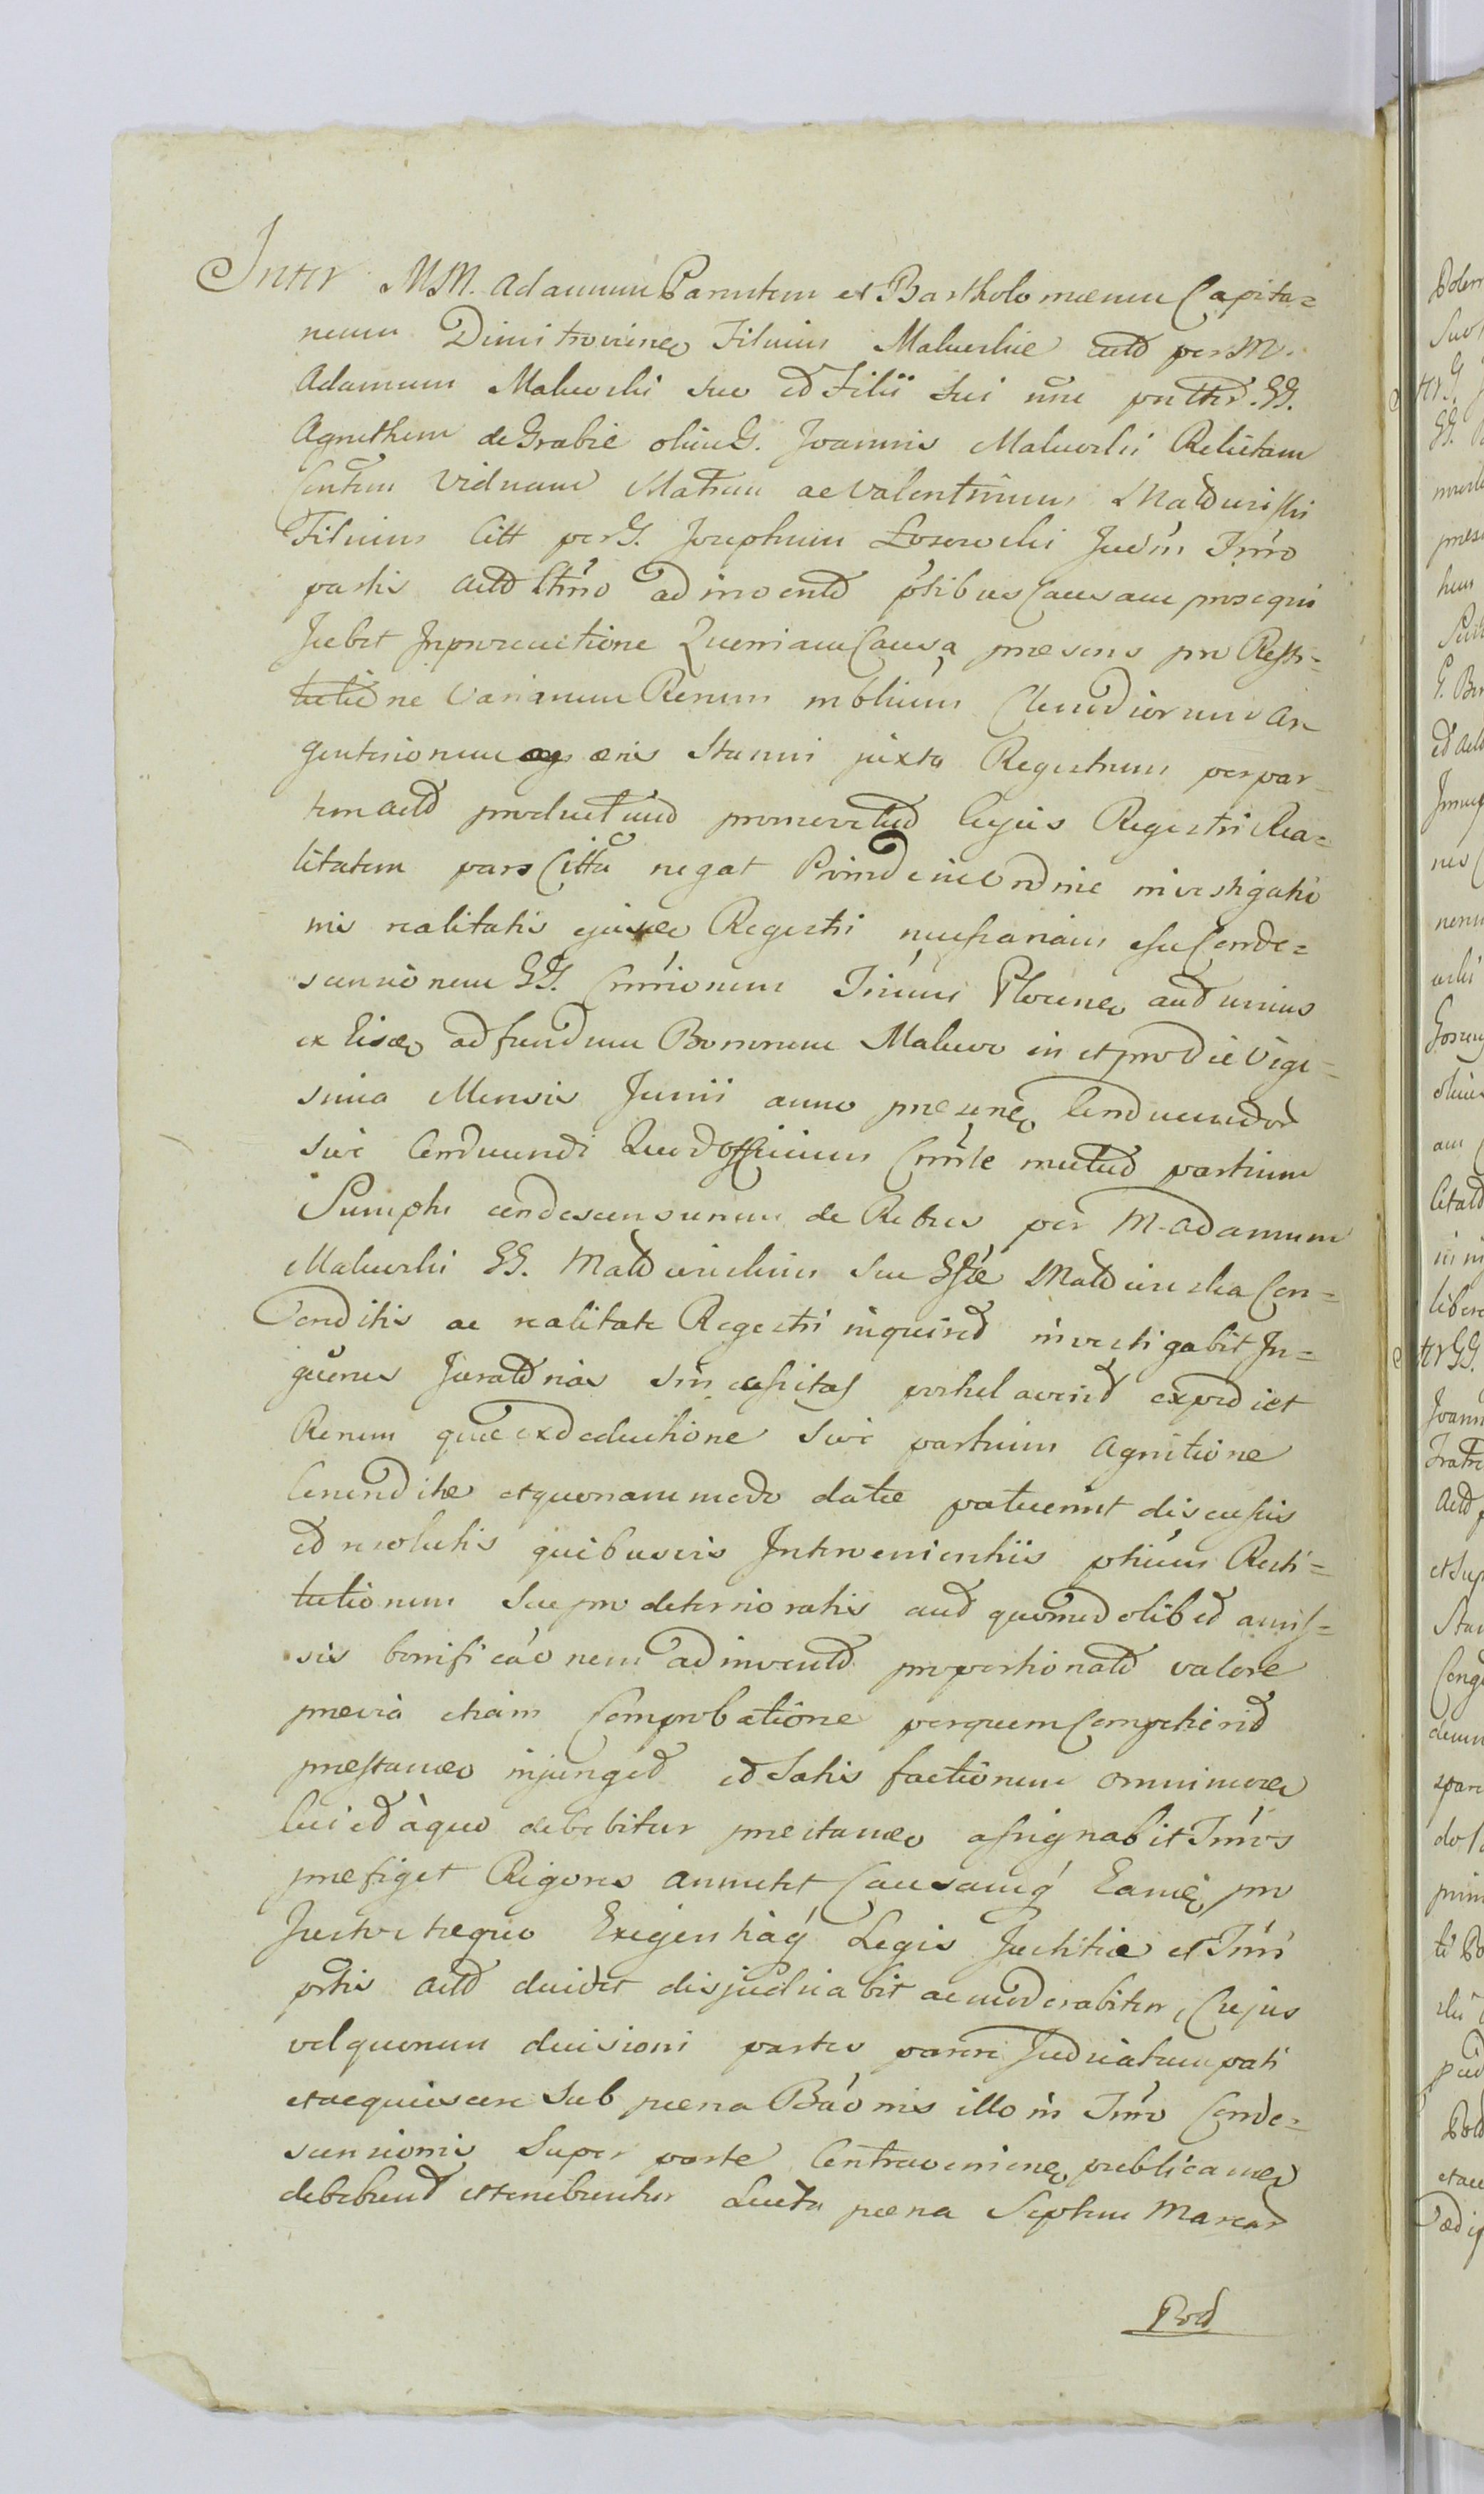 Inter MM. Adamum Parentem et Bartholomæum Capita=
neum Dimitrovien Filium Maluskie actō per M.
Adamum Maluski suo et Filii sui nñe ptter. GG.
Agnethem de Grabie olim G. Joannis Maluski Relictam
Viduam Matrem ac Valentinum Madurski
Filium Citt per G. Josephum Losowski Judm Tñro
partis actō ad inventō ptibus Causam prosequi
Jubet In prosecutione Quoniam Causa præsens pro Resti=
tutione Variarum Rerum mblium Clenodiorum Ar
genteriorum æris Stanni juxta Regestrum per par
tem actō productum promovetur Cujus Regestri Rea=
litatem pars Citta negat Proinde in Ordine investigatio
nis realitatis ejusm Regestri necessariam esse Conde=
scensionem GG. Cmrionum Trium Plocen aut unius
ex Eisd ad fundum Bonorum Maluvo in et pro die Vige=
sima Mensis Junii anno præsen Conducendor
sive Conducendi Quod officium Cmrle mutuo partium
Sumptu condescensurum de Rebus per M. Adamum
Maluski GG. Maduriskim seu Gsæ Madurska Con=
Venditis ac realitate Regestri inquiret investigabit In=
quirens Juratorias si necessitas postulaverit expediet
Rerum quæ ex deductione sive partium Agnitione
Convenditæ et quonam modo datæ patuerint discussis
et resolutis quibusvis Intervenientiis ptium Resti=
tutionem seu pro deterioratis aut quomodolibet amis=
sis bonificaōnem ad inventō proportionatō valore
prævia etiam Comprobatione per quem Competierit
præstan injunget et Satisfactionem omnimod
Cui et à quo debebitur præstan assignabit Tmos
præfiget Rigores annectet Causamq Eand pro
Justo et æquo Exigentiaq Legis Justitiæ et Tmi
ptis actō decidet disjudicabit ac moderabitur, Cujus
vel quorum decisioni partes parere Judicatum pati
et acquiescere Sub pœna Baōnis illo in Tmo Conde=
scensionis Super parte Contravenien publican
debebunt et tenebuntur Lucta pœna Septem Marcar
Pod